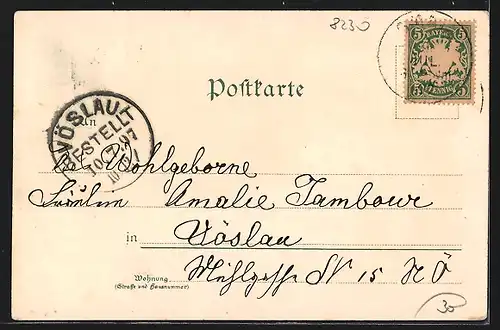 8230
BAYERN
5 5
PFENNIG
Postkarte
VÖSLAU
BESTELLT
10 7 97
An
Wohlgeborne
Fräulein Amalie Tambour
in Vöslau
Mühlgasse N 15 NÖ
Wohnung
(Straße und Hausnummer)
30